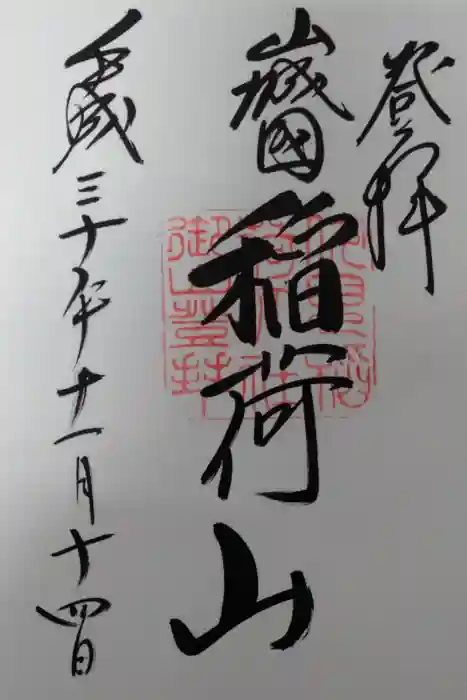 登拝
山城國
稲荷山
平成三十年十一月十四日